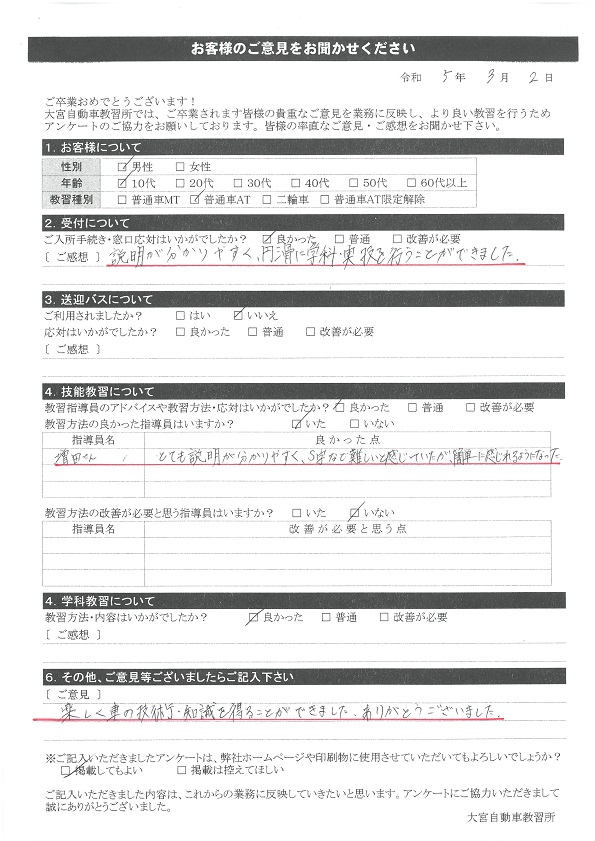 お客様のご意見をお聞かせください
令和 5年 3月 2日
ご卒業おめでとうございます！
大宮自動車教習所では、ご卒業されます皆様の貴重なご意見を業務に反映し、より良い教習を行うため
アンケートのご協力をお願いしております。皆様の率直なご意見・ご感想をお聞かせ下さい。
1. お客様について
性別 ☑男性 □女性
年齢 ☑10代 □20代 □30代 □40代 □50代 □60代以上
教習種別 □普通車MT ☑普通車AT □二輪車 □普通車AT限定解除
2. 受付について
ご入所手続き・窓口応対はいかがでしたか？ ☑良かった □普通 □改善が必要
［ご感想］ 説明が分かりやすく、円滑に学科・実技を行うことができました。
3. 送迎バスについて
ご利用されましたか？ □はい ☑いいえ
応対はいかがでしたか？ □良かった □普通 □改善が必要
［ご感想］
4. 技能教習について
教習指導員のアドバイスや教習方法・応対はいかがでしたか？ ☑良かった □普通 □改善が必要
教習方法の良かった指導員はいますか？ ☑いた □いない
指導員名 良かった点
増田さん とても説明が分かりやすく、S字など難しいと感じていたが、簡単に感じれるようになった。
教習方法の改善が必要と思う指導員はいますか？ □いた ☑いない
指導員名 改善が必要と思う点
4. 学科教習について
教習方法・内容はいかがでしたか？ ☑良かった □普通 □改善が必要
［ご感想］
6. その他、ご意見等ございましたらご記入下さい
［ご意見］
楽しく車の技術・知識を得ることができました。ありがとうございました。
※ご記入いただきましたアンケートは、弊社ホームページや印刷物に使用させていただいてもよろしいでしょうか？
☑掲載してもよい □掲載は控えてほしい
ご記入いただきました内容は、これからの業務に反映していきたいと思います。アンケートにご協力いただきまして
誠にありがとうございました。
大宮自動車教習所